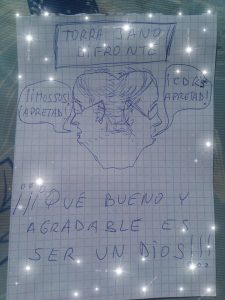 TORRA JANO
BIFRONTE
¡¡MOSSOS
APRETAD!!
¡CDRS
APRETAD!
¡¡¡QUÉ BUENO Y
AGRADABLE ES
SER UN DIOS!!!